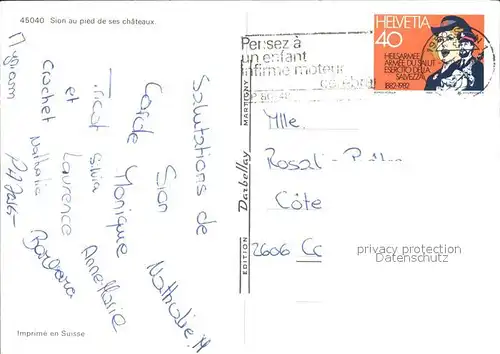 45040 Sion au pied de ses châteaux.
Salutations de
Sion Nathalie M
Carole Monique
Annemarie
Tricot Silvia
et Laurence Barbara
Crochet Nathalie
Myriam
Imprimé en Suisse
EDITION Darbellay MARTIGNY
Pensez à
un enfant
infirme moteur
HELVETIA
40
HEILSARMEE
ARMÉE DU SALUT
ESERCITO DELLA
SALVEZZA
1882-1982
Mlle.
Rosal
Côte
2606 Co
privacy protection
Datenschutz